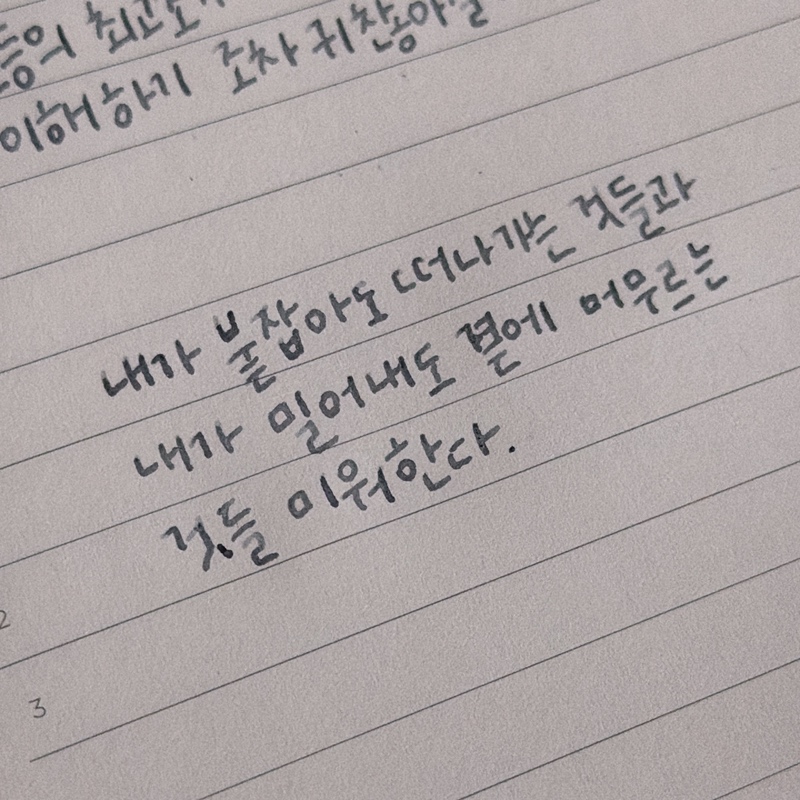 들의 최고
이해하기 조차 귀찮아질
내가 붙잡아도 떠나가는 것들과
내가 밀어내도 곁에 머무르는
것들 미워한다.
2
3